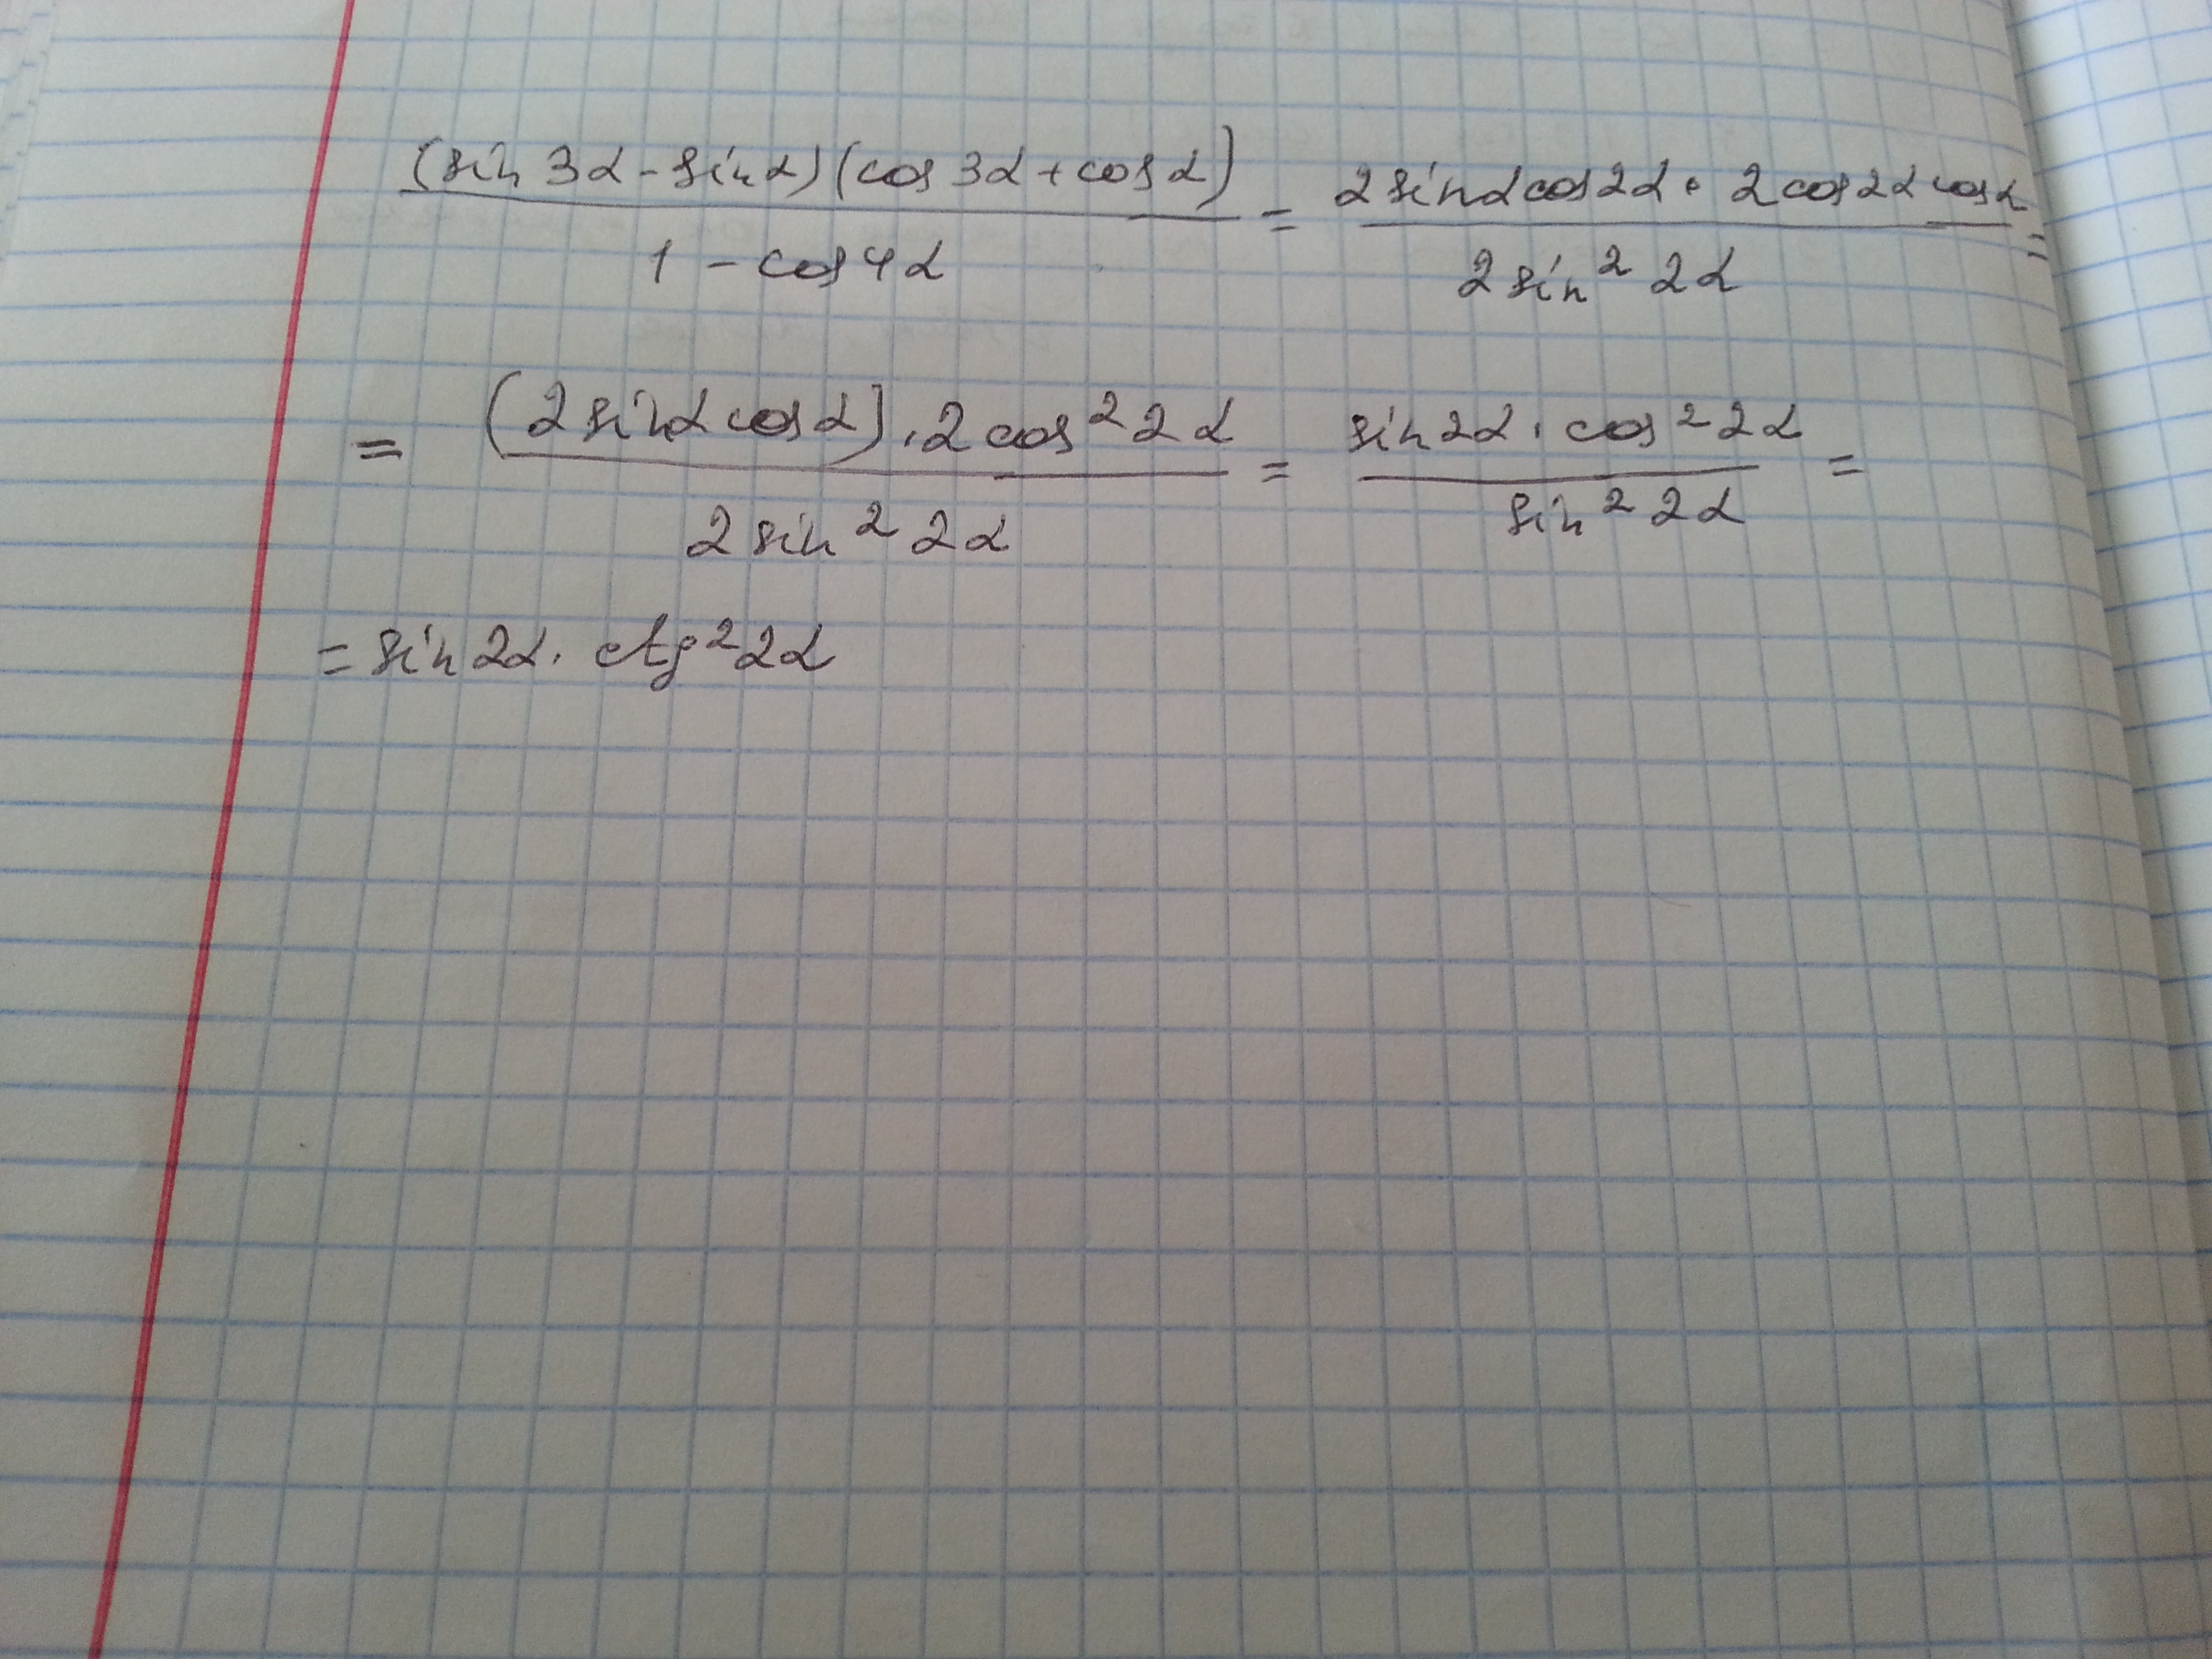 (sin 3α - sin α)(cos 3α + cos α) / 1 - cos 4α = 2 sin α cos 2α · 2 cos 2α cos α / 2 sin² 2α =
= (2 sin α cos α) · 2 cos² 2α / 2 sin² 2α = sin 2α · cos² 2α / sin² 2α =
= sin 2α · ctg² 2α